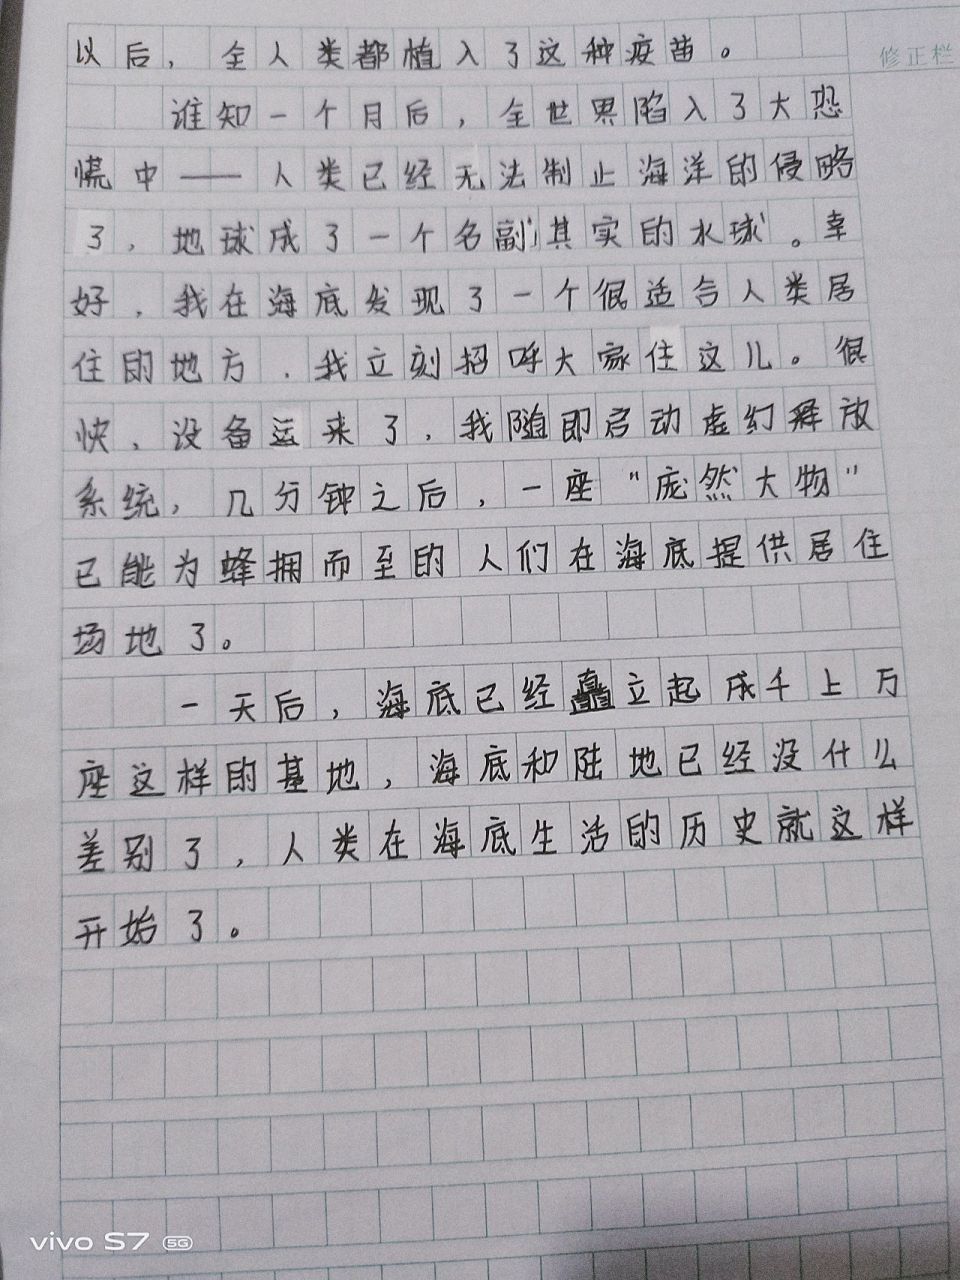 以后，全人类都植入了这种疫苗。
修正栏
谁知一个月后，全世界陷入了大恐
慌中——人类已经无法制止海洋的侵略
了，地球成了一个名副其实的水球。幸
好，我在海底发现了一个很适合人类居
住的地方，我立刻招呼大家住这儿。很
快，设备运来了，我随即启动虚幻释放
系统，几分钟之后，一座“庞然大物”
已能为蜂拥而至的人们在海底提供居住
场地了。
一天后，海底已经矗立起成千上万
座这样的基地，海底和陆地已经没什么
差别了，人类在海底生活的历史就这样
开始了。
vivo S7 5G